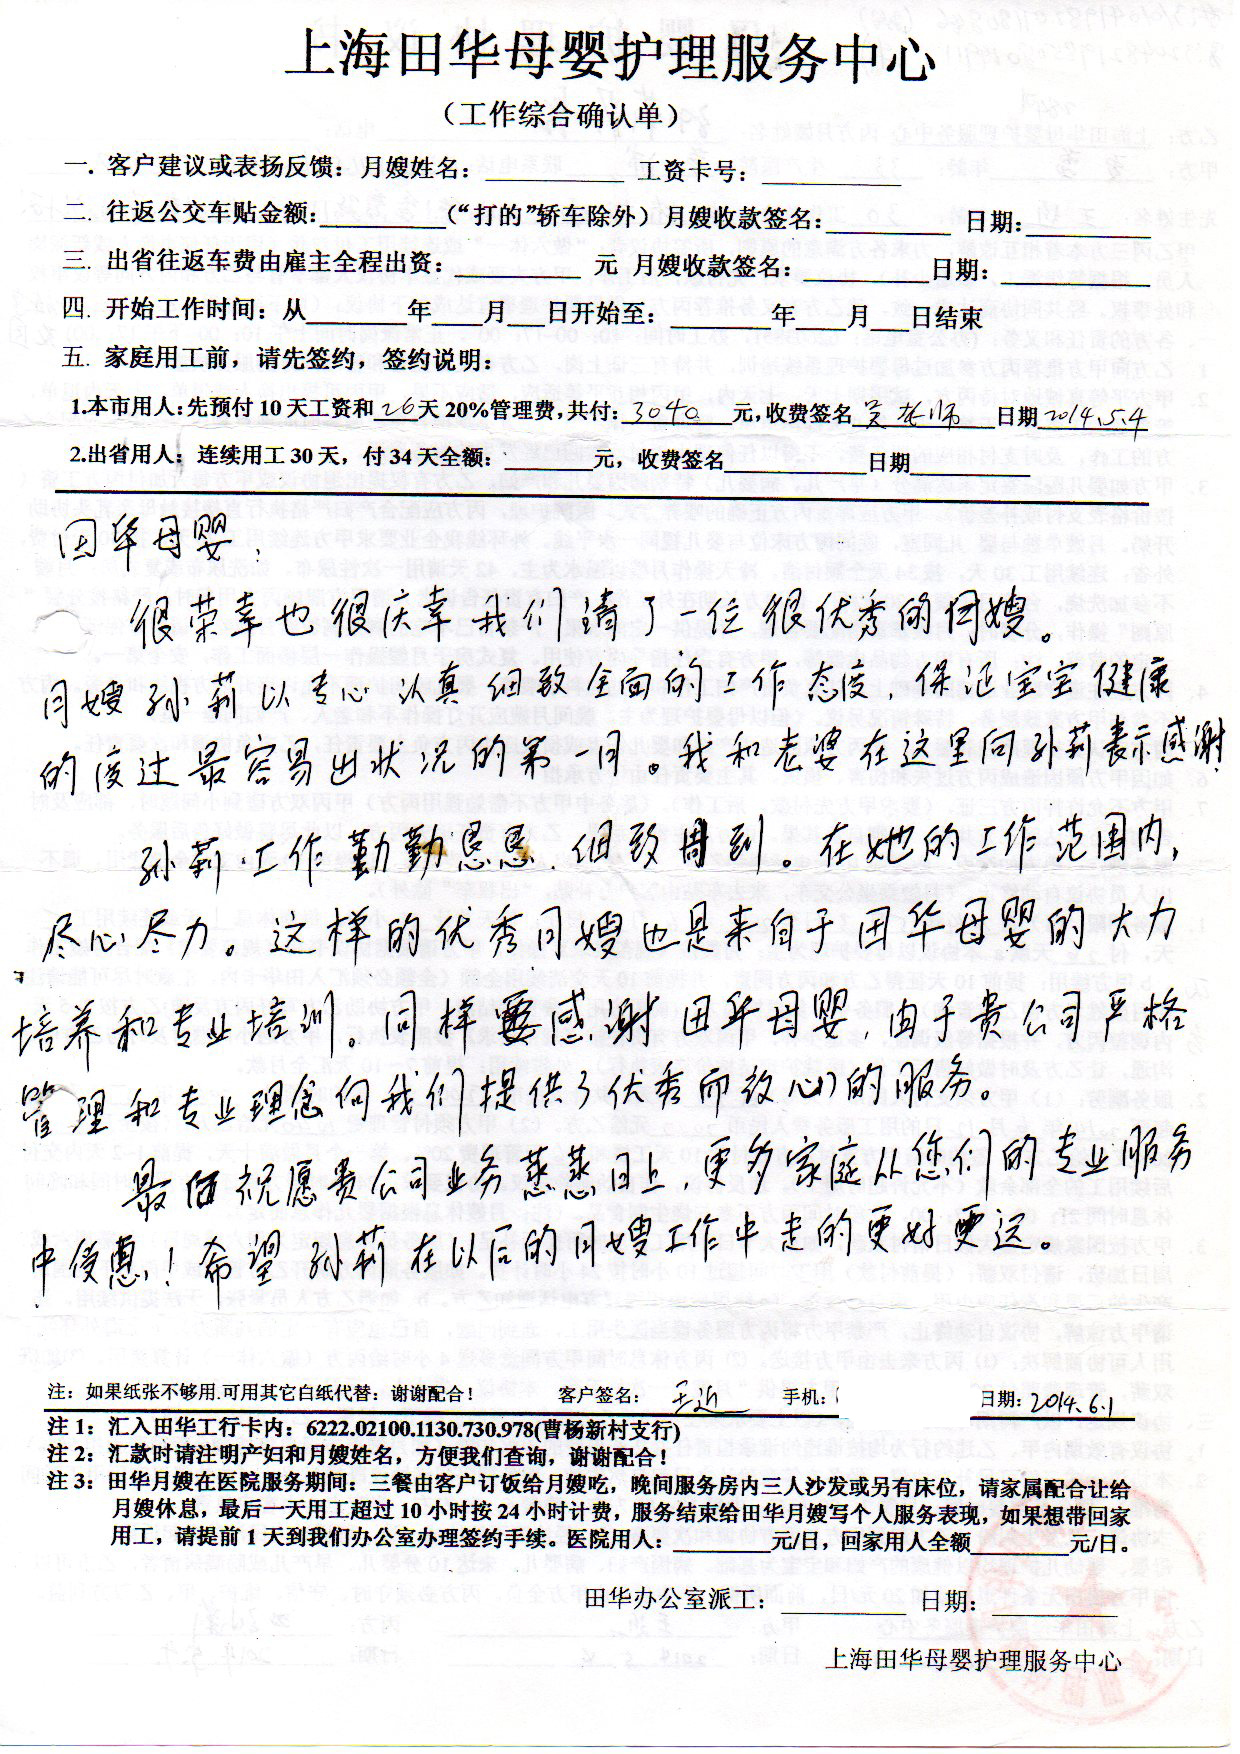 上海田华母婴护理服务中心
（工作综合确认单）
一. 客户建议或表扬反馈：月嫂姓名：__________ 工资卡号：__________
二. 往返公交车贴金额：__________（“打的”轿车除外）月嫂收款签名：__________ 日期：__________
三. 出省往返车费由雇主全程出资：__________ 元 月嫂收款签名：__________ 日期：__________
四. 开始工作时间：从________年____月___日开始至：________年____月___日结束
五. 家庭用工前，请先签约，签约说明：
1.本市用人：先预付 10 天工资和 26 天 20%管理费，共付：3040 元，收费签名 日期 2014.5.4
2.出省用人：连续用工 30 天，付 34 天全额：_______元，收费签名__________日期__________
田华母婴：
很荣幸也很庆幸我们请了一位很优秀的月嫂。
月嫂孙莉以专心认真细致全面的工作态度，保证宝宝健康
的度过最容易出状况的第一月。我和老婆在这里向孙莉表示感谢
孙莉工作勤勤恳恳、细致周到。在她的工作范围内，
尽心尽力。这样的优秀月嫂也是来自于田华母婴的大力
培养和专业培训。同样要感谢田华母婴，由于贵公司严格
管理和专业理念向我们提供了优秀而放心的服务。
最后祝愿贵公司业务蒸蒸日上，更多家庭从您们的专业服务
中受惠！希望孙莉在以后的月嫂工作中走的更好更远。
注：如果纸张不够用.可用其它白纸代替：谢谢配合！ 客户签名：王近 手机： 日期：2014.6.1
注 1：汇入田华工行卡内：6222.02100.1130.730.978(曹杨新村支行)
注 2：汇款时请注明产妇和月嫂姓名，方便我们查询，谢谢配合！
注 3：田华月嫂在医院服务期间：三餐由客户订饭给月嫂吃，晚间服务房内三人沙发或另有床位，请家属配合让给
月嫂休息，最后一天用工超过 10 小时按 24 小时计费，服务结束给田华月嫂写个人服务表现，如果想带回家
用工，请提前 1 天到我们办公室办理签约手续。医院用人：________元/日，回家用人全额________元/日。
田华办公室派工：__________ 日期：__________
上海田华母婴护理服务中心